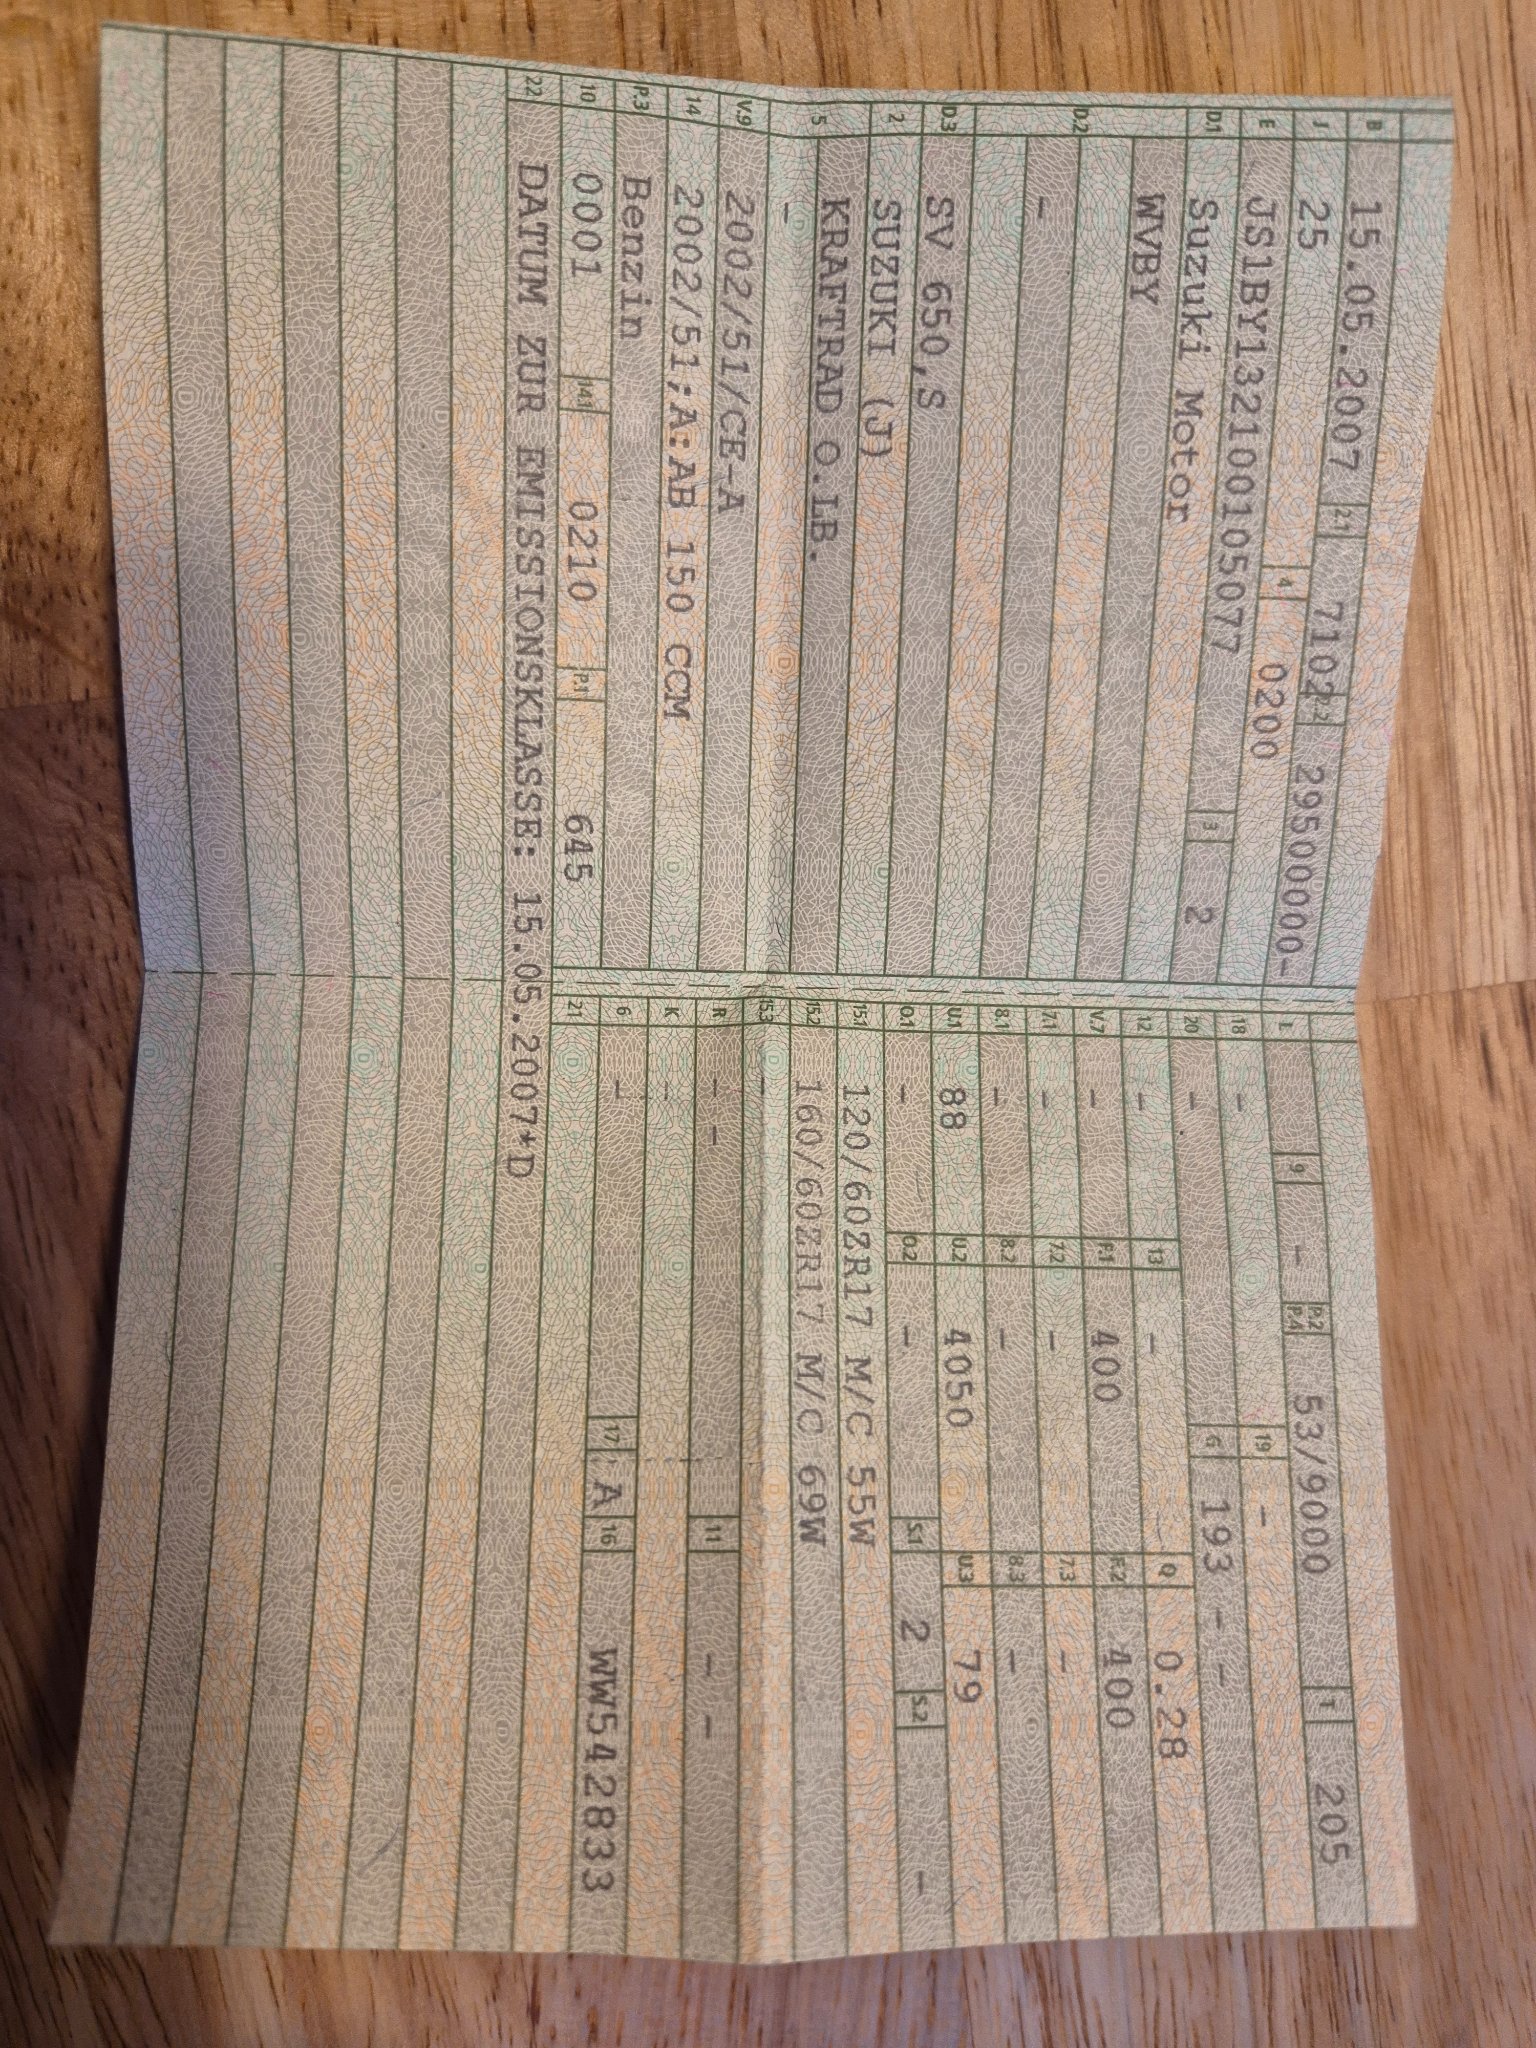 B 15.05.2007 2.1 7102 2.2 29500000-
J 25 4 0200
E JS1BY132100105077 3 2
D.1 Suzuki Motor
D.2 WVBY
-
D.3 SV 650,S
2 SUZUKI (J)
5 KRAFTRAD O.LB.
-
V.9 2002/51/CE-A
14 2002/51;A:AB 150 CCM
P.3 Benzin
10 0001 14.1 0210 P.1 645
22 DATUM ZUR EMISSIONSKLASSE: 15.05.2007*D
L 9 - P.2 P.4 53/9000 T 205
18 - 19 -
20 - G 193 - -
12 - 13 - Q 0.28
V.7 - F.1 400 F.2 400
7.1 - 7.2 - 7.3 -
8.1 - 8.2 - 8.3 -
U.1 88 U.2 4050 U.3 79
O.1 - O.2 - S.1 2 S.2 -
15.1 120/60ZR17 M/C 55W
15.2 160/60ZR17 M/C 69W
15.3 -
R - - 11 - -
K -
6 - 17 A 16 WW542833
21